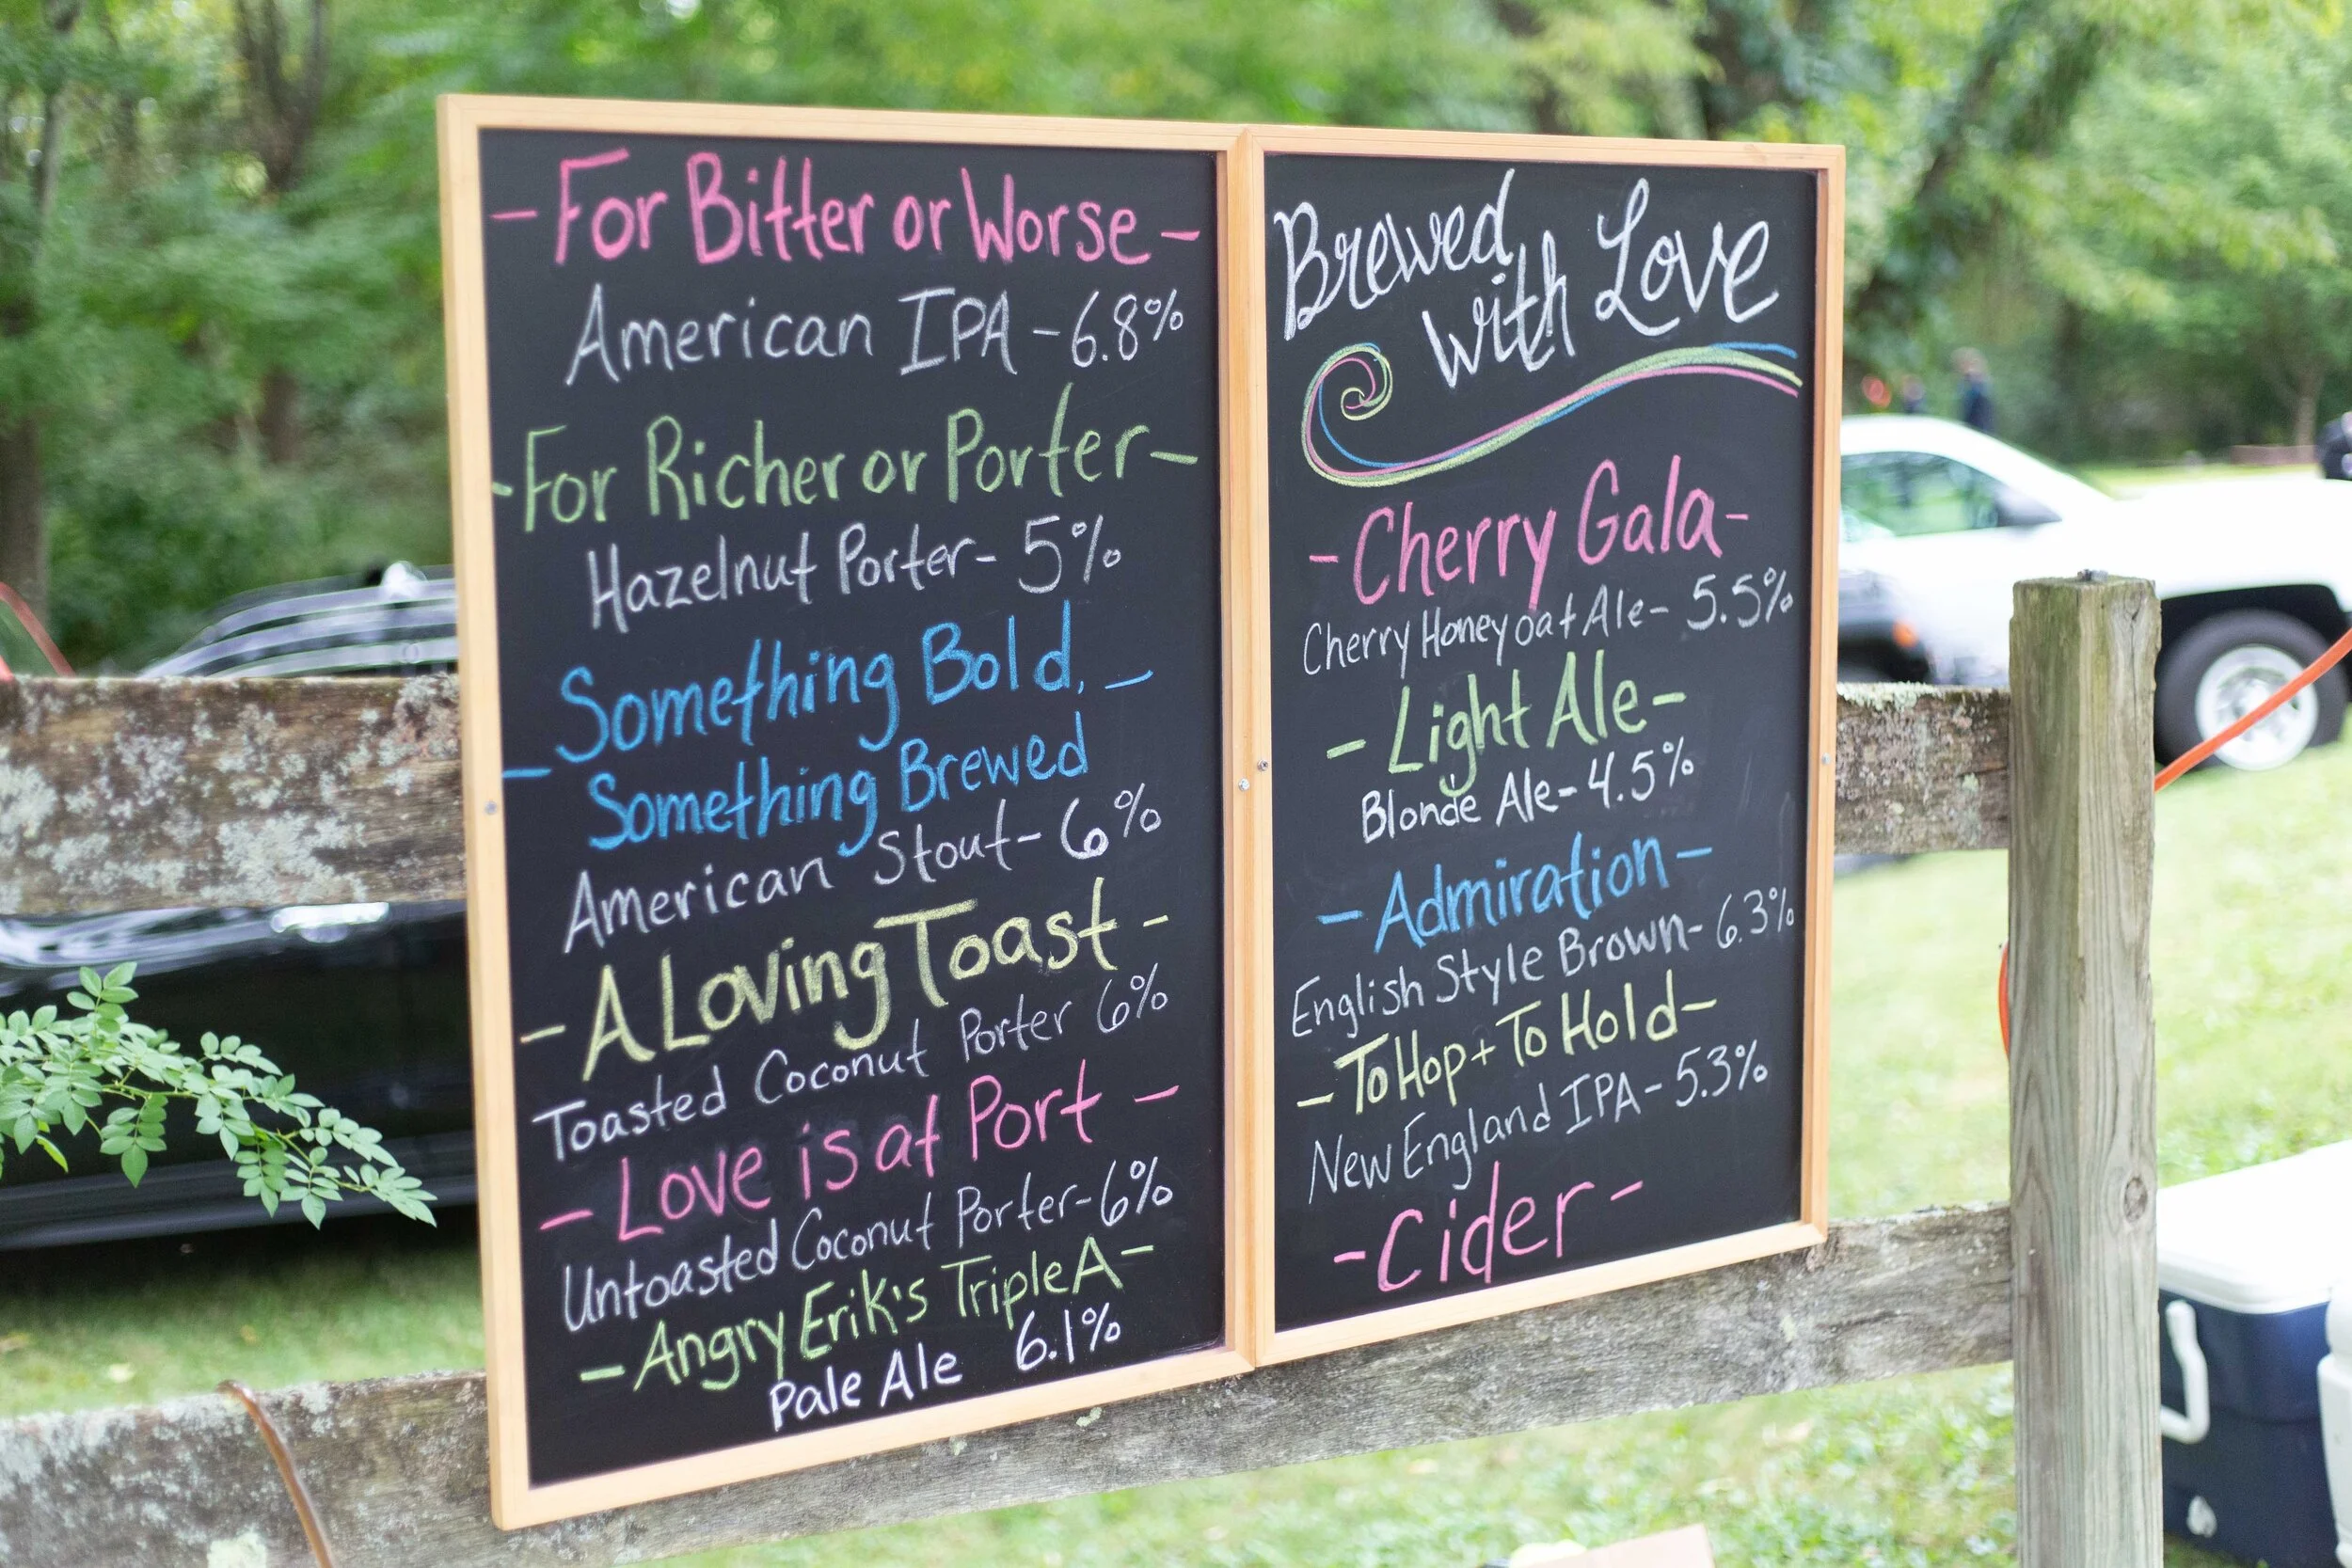 - For Bitter or Worse -
American IPA - 6.8%
- For Richer or Porter -
Hazelnut Porter - 5%
- Something Bold, -
Something Brewed
American Stout - 6%
- A Loving Toast -
Toasted Coconut Porter 6%
- Love is at Port -
Untoasted Coconut Porter - 6%
- Angry Erik's Triple A -
Pale Ale 6.1%
Brewed
with Love
- Cherry Gala -
Cherry Honey oat Ale - 5.5%
- Light Ale -
Blonde Ale - 4.5%
- Admiration -
English Style Brown - 6.3%
- To Hop + To Hold -
New England IPA - 5.3%
- Cider -